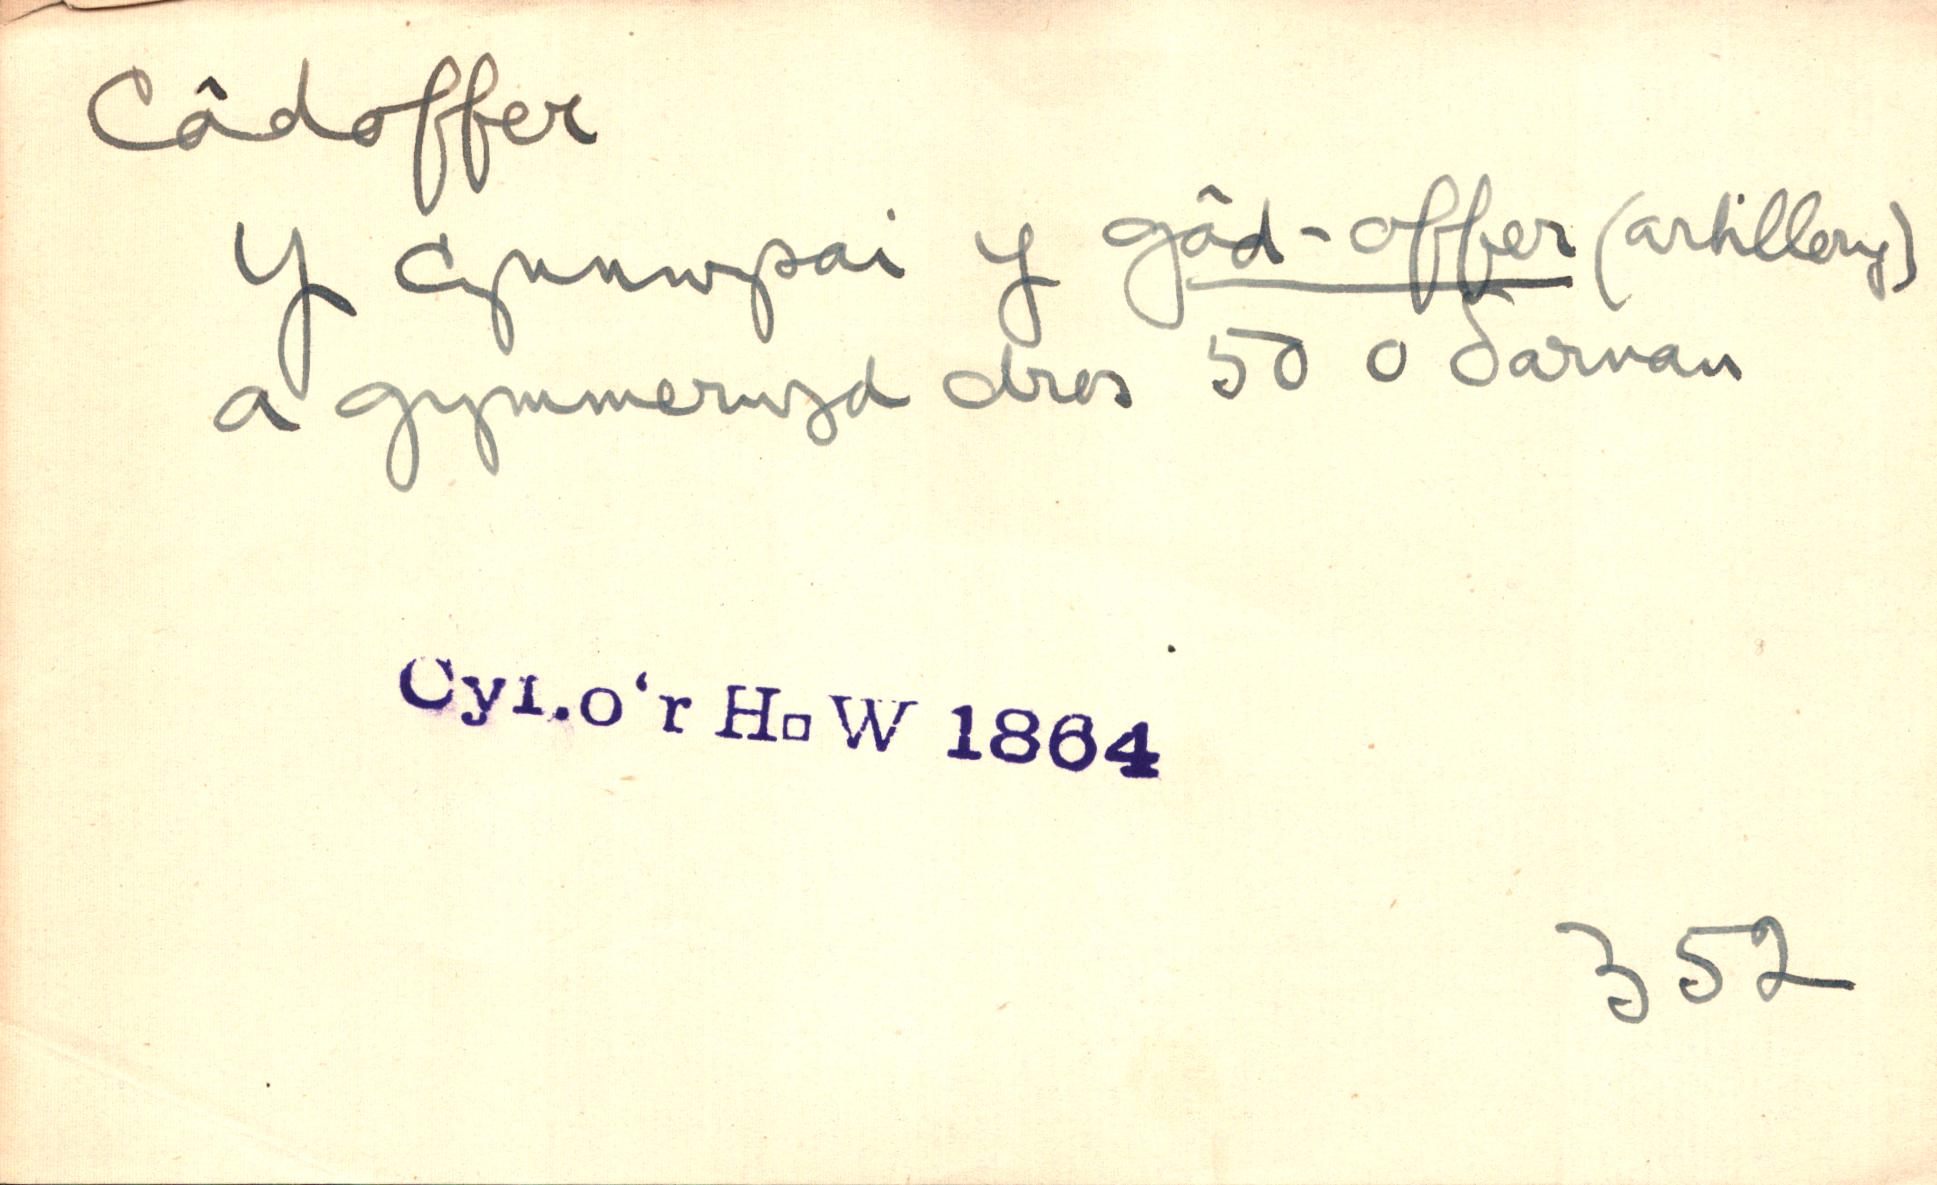 Câdoffer
Y cynnwysai y gâd-offer (artillery)
a gymmerwyd dros 50 o δarnau
Cyf.o'r H. W 1864
352